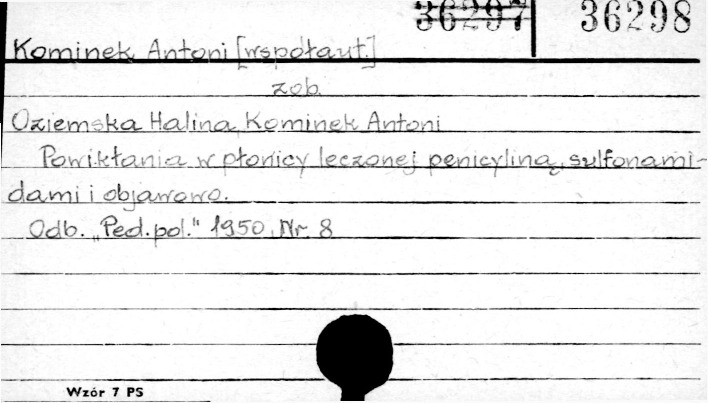 36297 36298
Kominek Antoni [współaut.]
zob.
Oziemska Halina, Kominek Antoni
Powikłania w płonicy leczonej penicyliną, sulfonami-
dami i objawowo.
Odb. „Ped. pol." 1950, Nr. 8
Wzór 7 PS